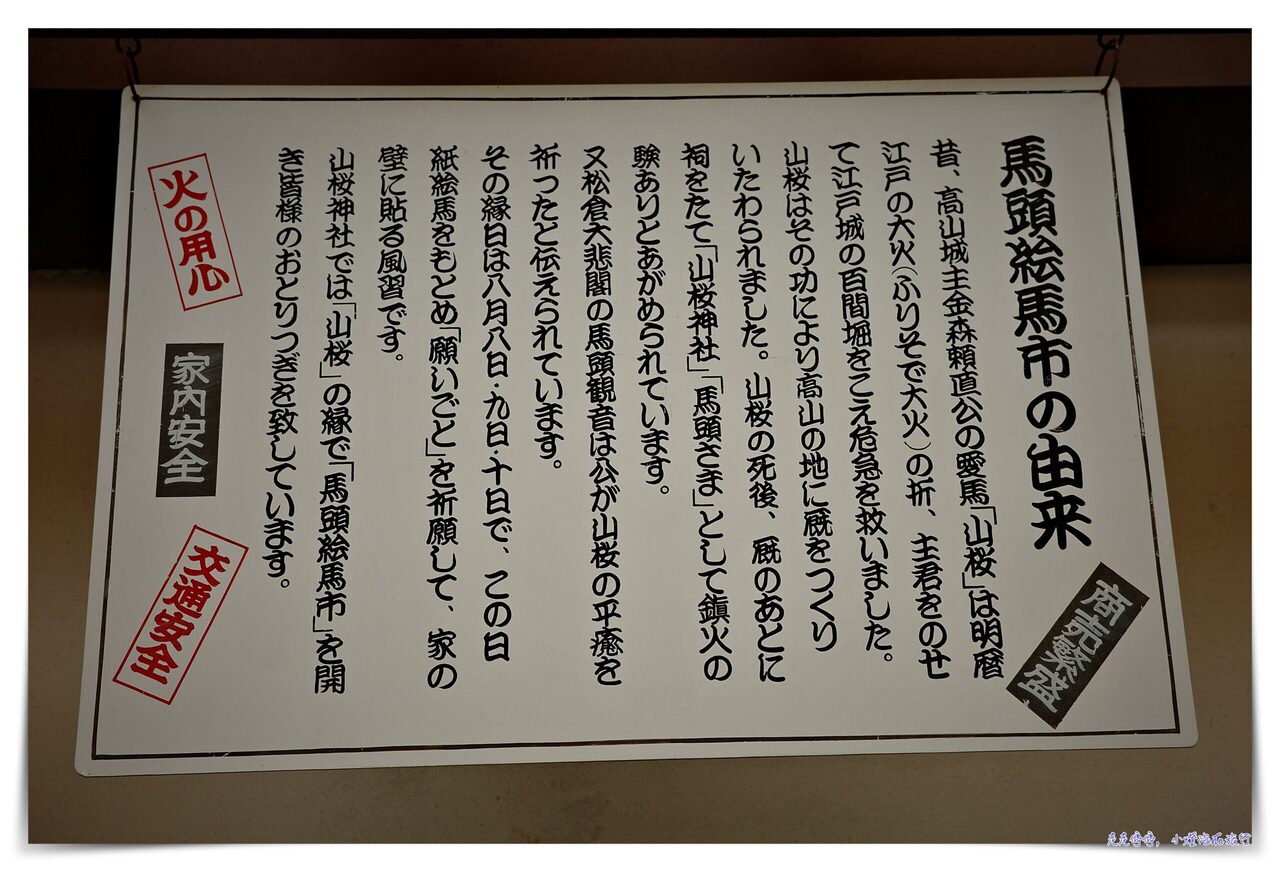 馬頭絵馬市の由来
商売繁盛
昔、高山城主金森頼直公の愛馬「山桜」は明暦
江戸の大火(ふりそで大火)の折、主君をのせ
て江戸城の百間堀をこえ危急を救いました。
山桜はその功により高山の地に厩をつくり
いたわられました。山桜の死後、厩のあとに
祠をたて「山桜神社」「馬頭さま」として鎮火の
験ありとあがめられています。
又松倉大悲閣の馬頭観音は公が山桜の平癒を
祈ったと伝えられています。
その縁日は八月八日・九日・十日で、この日
紙絵馬をもとめ「願いごと」を祈願して、家の
壁に貼る風習です。
山桜神社では「山桜」の縁で「馬頭絵馬市」を開
き皆様のおとりつぎを致しています。
火の用心
家内安全
交通安全